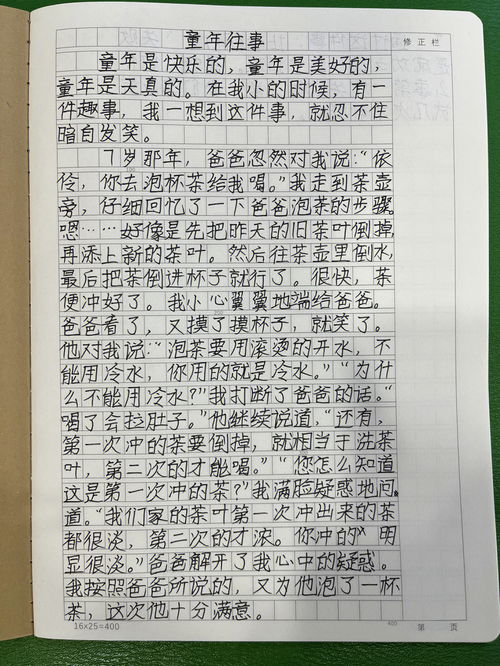 童年往事
修正栏
童年是快乐的，童年是美好的，
童年是天真的。在我小的时候，有一
件趣事，我一想到这件事，就忍不住
暗自发笑。
7岁那年，爸爸忽然对我说：“依
伶，你去泡杯茶给我喝。”我走到茶壶
旁，仔细回忆了一下爸爸泡茶的步骤。
嗯……好像是先把昨天的旧茶叶倒掉，
再添上新的茶叶。然后往茶壶里倒水，
最后把茶倒进杯子就行了。很快，茶
便冲好了。我小心翼翼地端给爸爸。
爸爸看了，又摸了摸杯子，就笑了。
他对我说：“泡茶要用滚烫的开水，不
能用冷水，你用的就是冷水。”“为什
么不能用冷水？”我打断了爸爸的话。“
喝了会拉肚子。”他继续说道，“还有，
第一次冲的茶要倒掉，就相当于洗茶
叶，第二次的才能喝。”“您怎么知道
这是第一次冲的茶？”我满脸疑惑地问
道。“我们家的茶叶第一次冲出来的茶
都很淡，第二次的才浓。你冲的“明
显很淡。”爸爸解开了我心中的疑惑。
我按照爸爸所说的，又为他泡了一杯
茶，这次他十分满意。
16×25=400
400
第 页